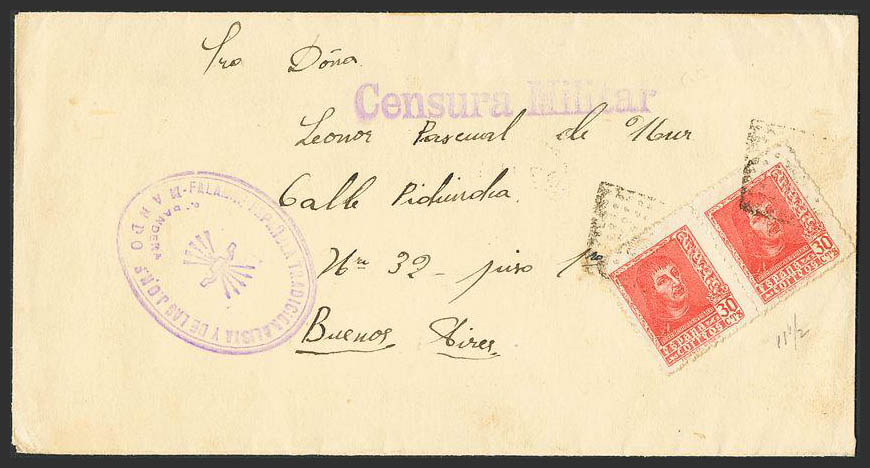 Sra Dóna
Censura Militar
Leonor Pascual de Mur
Calle
Nro 32 - piso 1ro
Buenos Aires
FALANGE ESPAÑOLA TRADICIONALISTA Y DE LAS J.O.N.S
BANDERA
MANDO
30
CTS
ESPAÑA
CORREOS
30
CTS
ESPAÑA
CORREOS
11 1/2